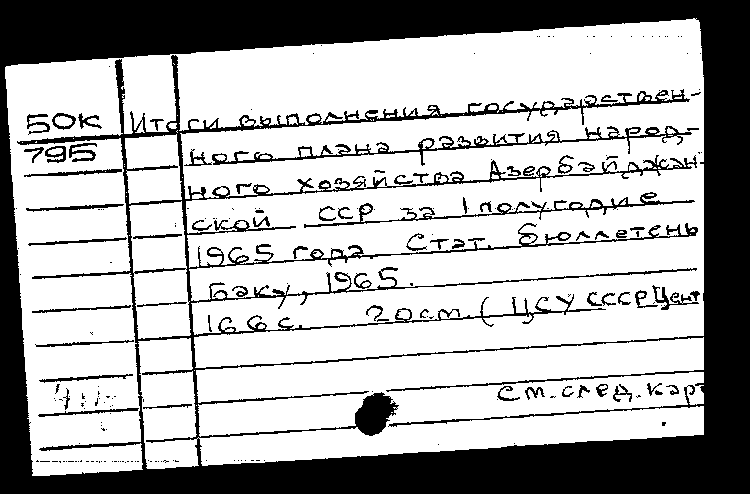 50К Итоги выполнения государствен-
795 ного плана развития народ-
ного хозяйства Азербайджан-
ской ССР за I полугодие
1965 года. Стат. бюллетень
Баку, 1965.
166 с. 20 см. (ЦСУ СССР Цент
см. след. карт